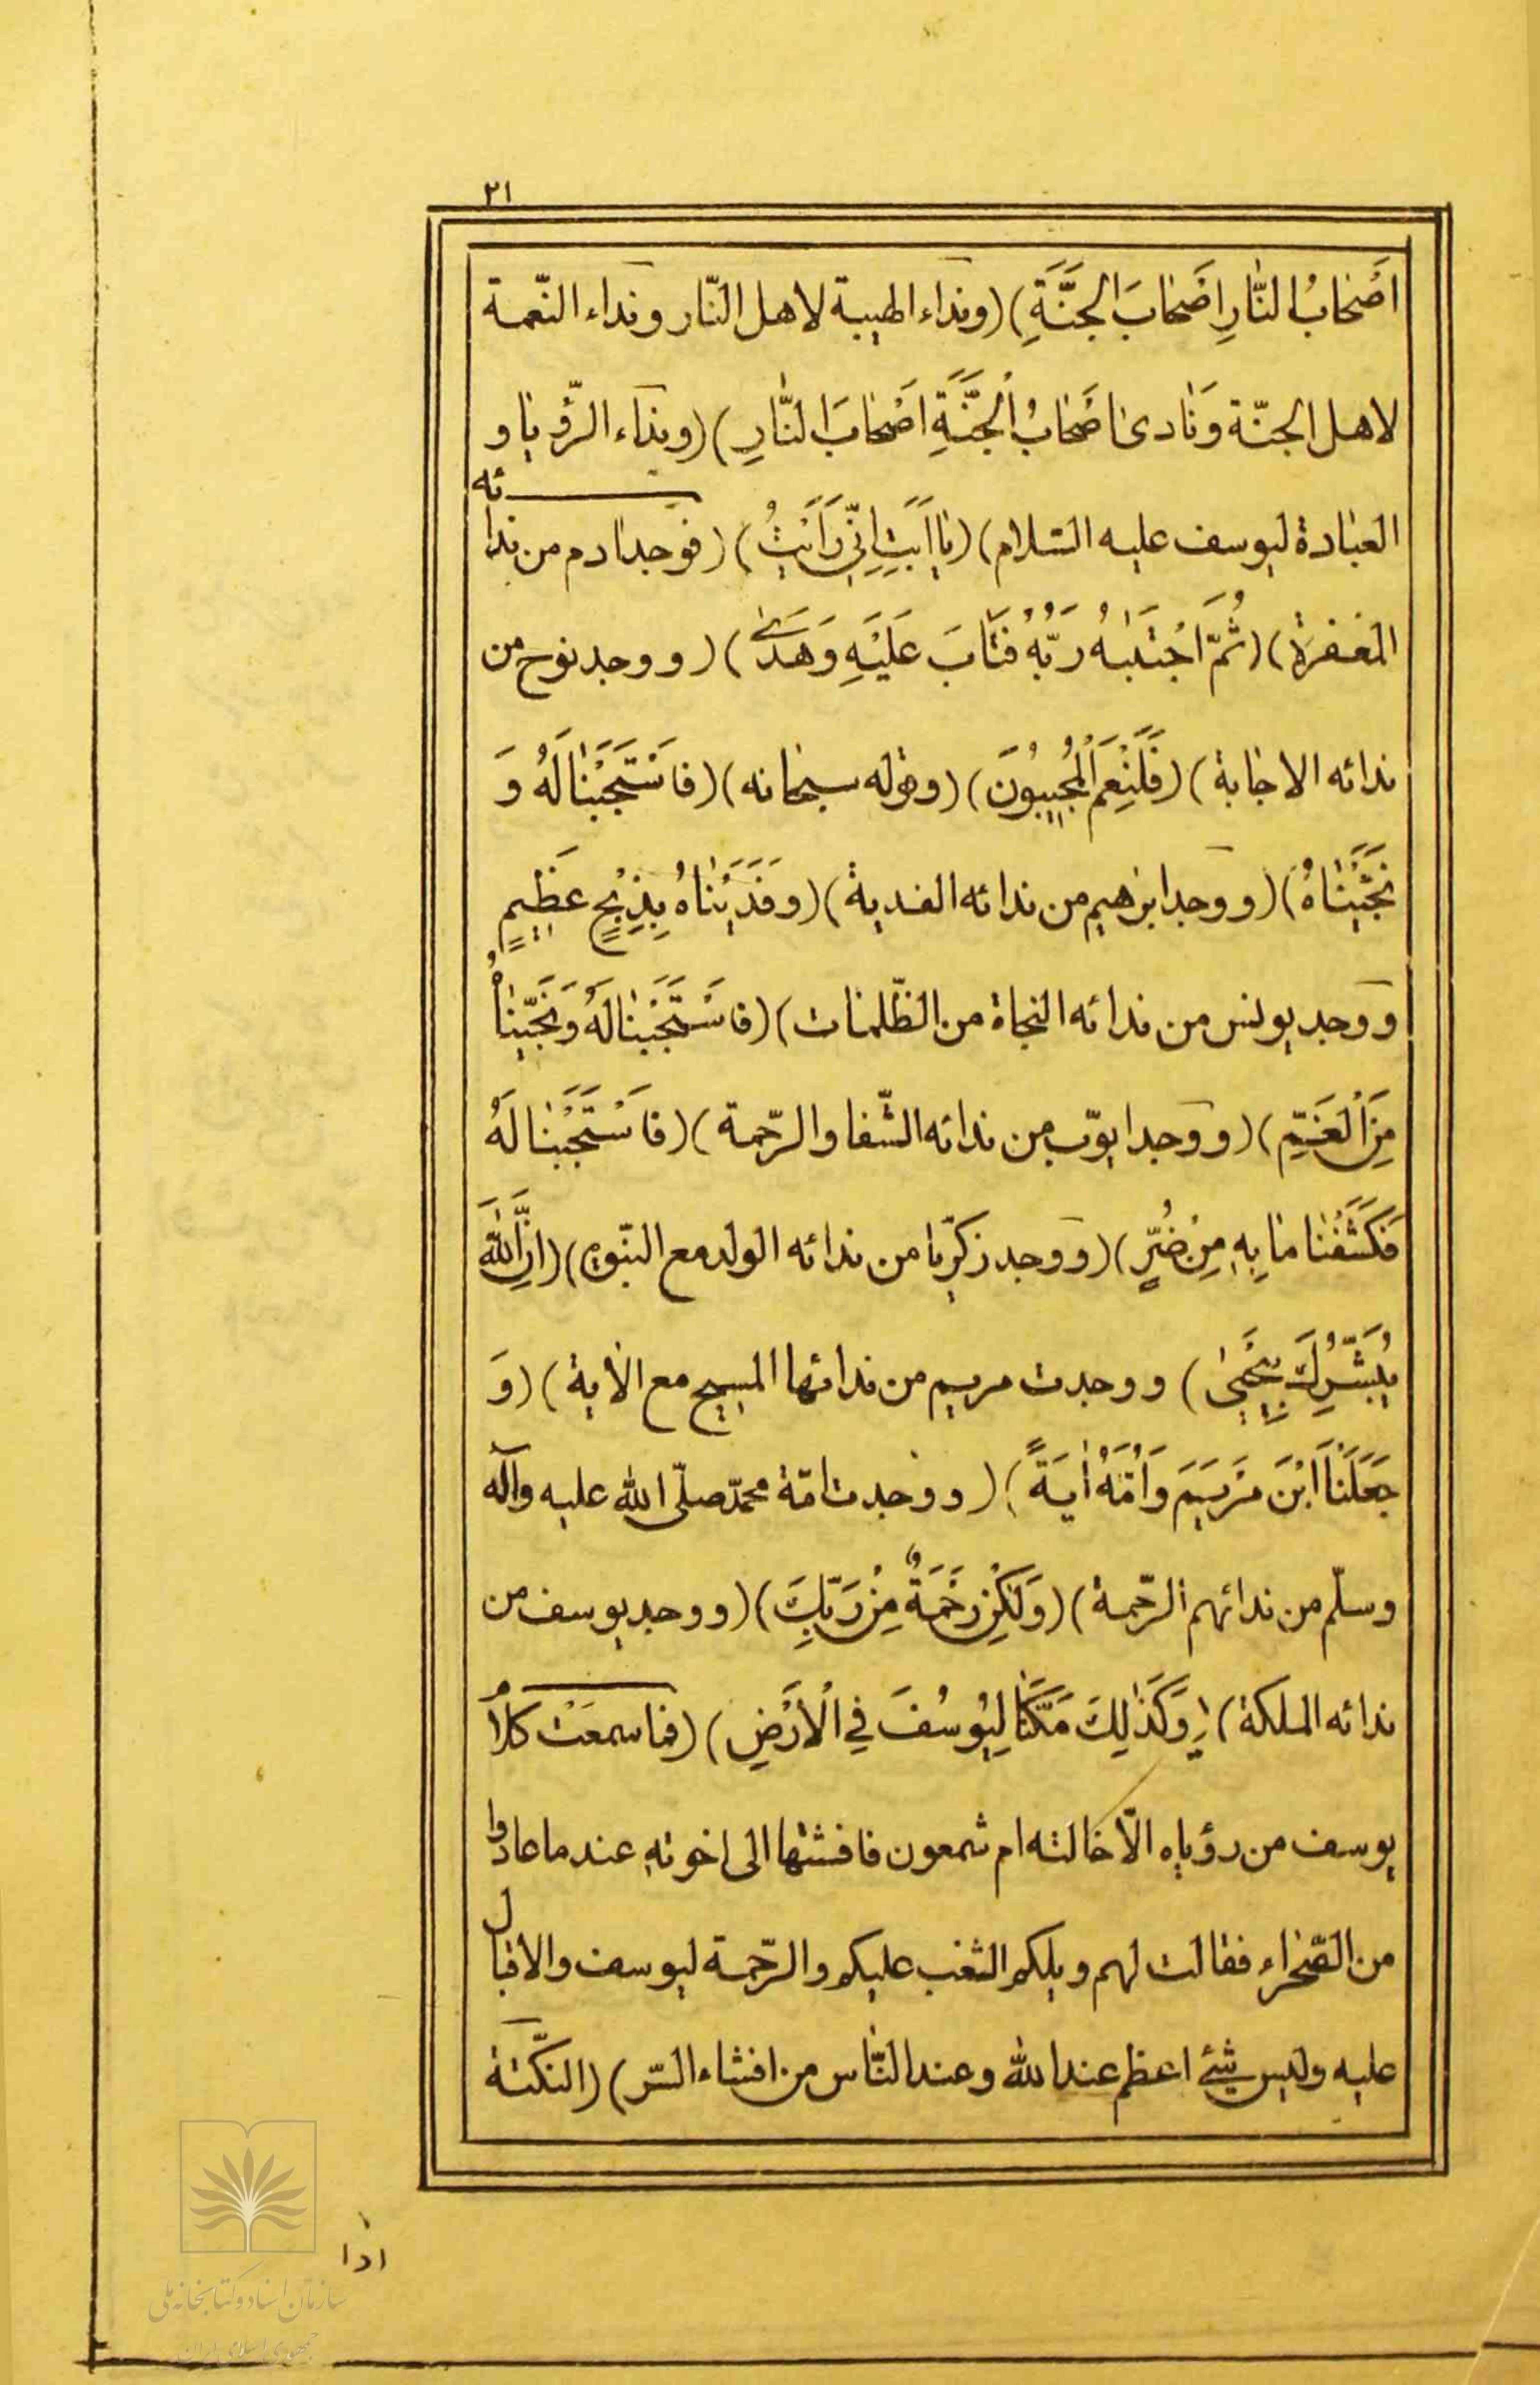 ۲۱
اَصْحٰابُ النّٰارِ اَصْحٰابَ الْجَنَّةِ) (ونداء الهيبة لاهل النّار ونداء النّعمة
لاهل الجنّة وَنٰادىٰ اَصْحٰابُ الْجَنَّةِ اَصْحٰابَ النّٰارِ) (ونداء الرّؤيا و
العبادة ليوسف عليه السّلام) (يٰا اَبَتِ اِنّي رَاَيْتُ) (فوجد آدم من ندائه
المغفرة) (ثُمَّ اجْتَبٰيهُ رَبُّهُ فَتٰابَ عَلَيْهِ وَهَدىٰ) (ووجد نوح من
ندائه الاجابة) (فَلَنِعْمَ الْمُجيبُونَ) (وقوله سبحانه) (فَاسْتَجَبْنٰا لَهُ وَ
نَجَّيْنٰاهُ) (ووجد ابرٰهيم من ندائه الفدية) (وَفَدَيْنٰاهُ بِذِبْحٍ عَظيمٍ
ووجد يونس من ندائه النجاة من الظّلمات) (فَاسْتَجَبْنٰا لَهُ وَنَجَّيْنٰاهُ
مِنَ الْغَمِّ) (ووجد ايوّب من ندائه الشّفا والرّحمة) (فَاسْتَجَبْنٰا لَهُ
فَكَشَفْنٰا مٰا بِهِ مِنْ ضُرٍّ) (ووجد زكريّا من ندائه الولد مع النبّوه) (اِنَّ اللّٰهَ
يُبَشِّرُكَ بِيَحْيىٰ) ووجدت مريم من ندائها المسيح مع الاٰية) (وَ
جَعَلْنَا ابْنَ مَرْيَمَ وَاُمَّهُ اٰيَةً) (ووجدت امّة محمّد صلّى الله عليه وآله
وسلّم من ندائهم الرّحمة) (وَلٰكِنْ رَحْمَةً مِنْ رَبِّكَ) (ووجد يوسف من
ندائه الملكة) (وَكَذٰلِكَ مَكَّنّٰا لِيُوسُفَ فِي الْاَرْضِ) (فما سمعَتْ كلام
يوسف من رؤياه الّا خالته ام شمعون فافشتها الى اخوته عند ما عادوا
من الصّحراء فقالت لهم ويلكم التعب عليكم والرّحمة ليوسف والاقبال
عليه وليس شيئ اعظم عند الله وعند النّاس من افشاء السّر) (النكّتة
اذا
سازمان اسناد و کتابخانه ملی
جمهوری اسلامی ایران